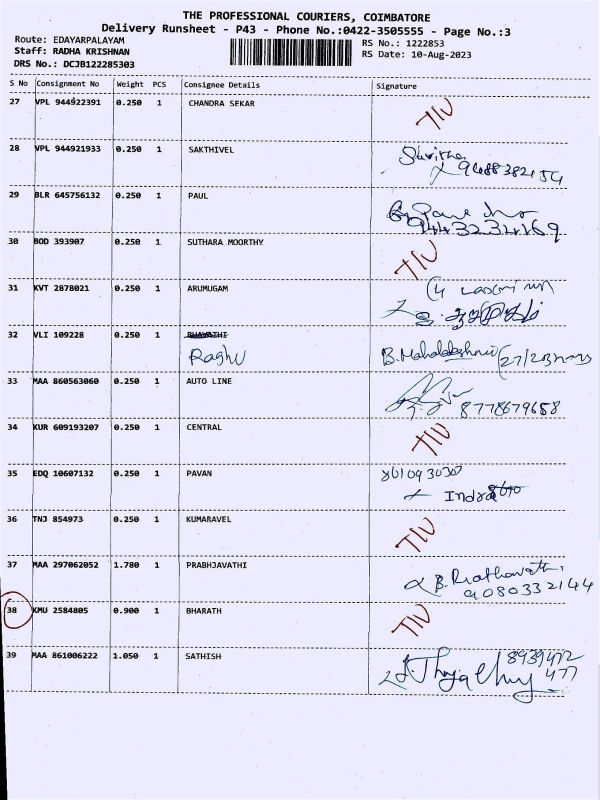 THE PROFESSIONAL COURIERS, COIMBATORE
Delivery Runsheet - P43 - Phone No.:0422-3505555 - Page No.:3
Route: EDAYARPALAYAM
Staff: RADHA KRISHNAN
DRS No.: DCJB122285303
RS No.: 1222853
RS Date: 10-Aug-2023
S No Consignment No Weight PCS Consignee Details Signature
27 VPL 944922391 0.250 1 CHANDRA SEKAR
28 VPL 944921933 0.250 1 SAKTHIVEL
29 BLR 645756132 0.250 1 PAUL
9443234169
30 BOD 393907 0.250 1 SUTHARA MOORTHY
31 KVT 2878021 0.250 1 ARUMUGAM
32 VLI 109228 0.250 1 BHAVATHI
Raghu B. Mahalakshmi
33 MAA 860563060 0.250 1 AUTO LINE
8778679658
34 KUR 609193207 0.250 1 CENTRAL
35 EDQ 10607132 0.250 1 PAVAN 8610930307
Indra
36 TNJ 854973 0.250 1 KUMARAVEL
37 MAA 297062052 1.780 1 PRABHJAVATHI
9080332144
38 KMU 2584805 0.900 1 BHARATH
39 MAA 861006222 1.050 1 SATHISH 8939472
477